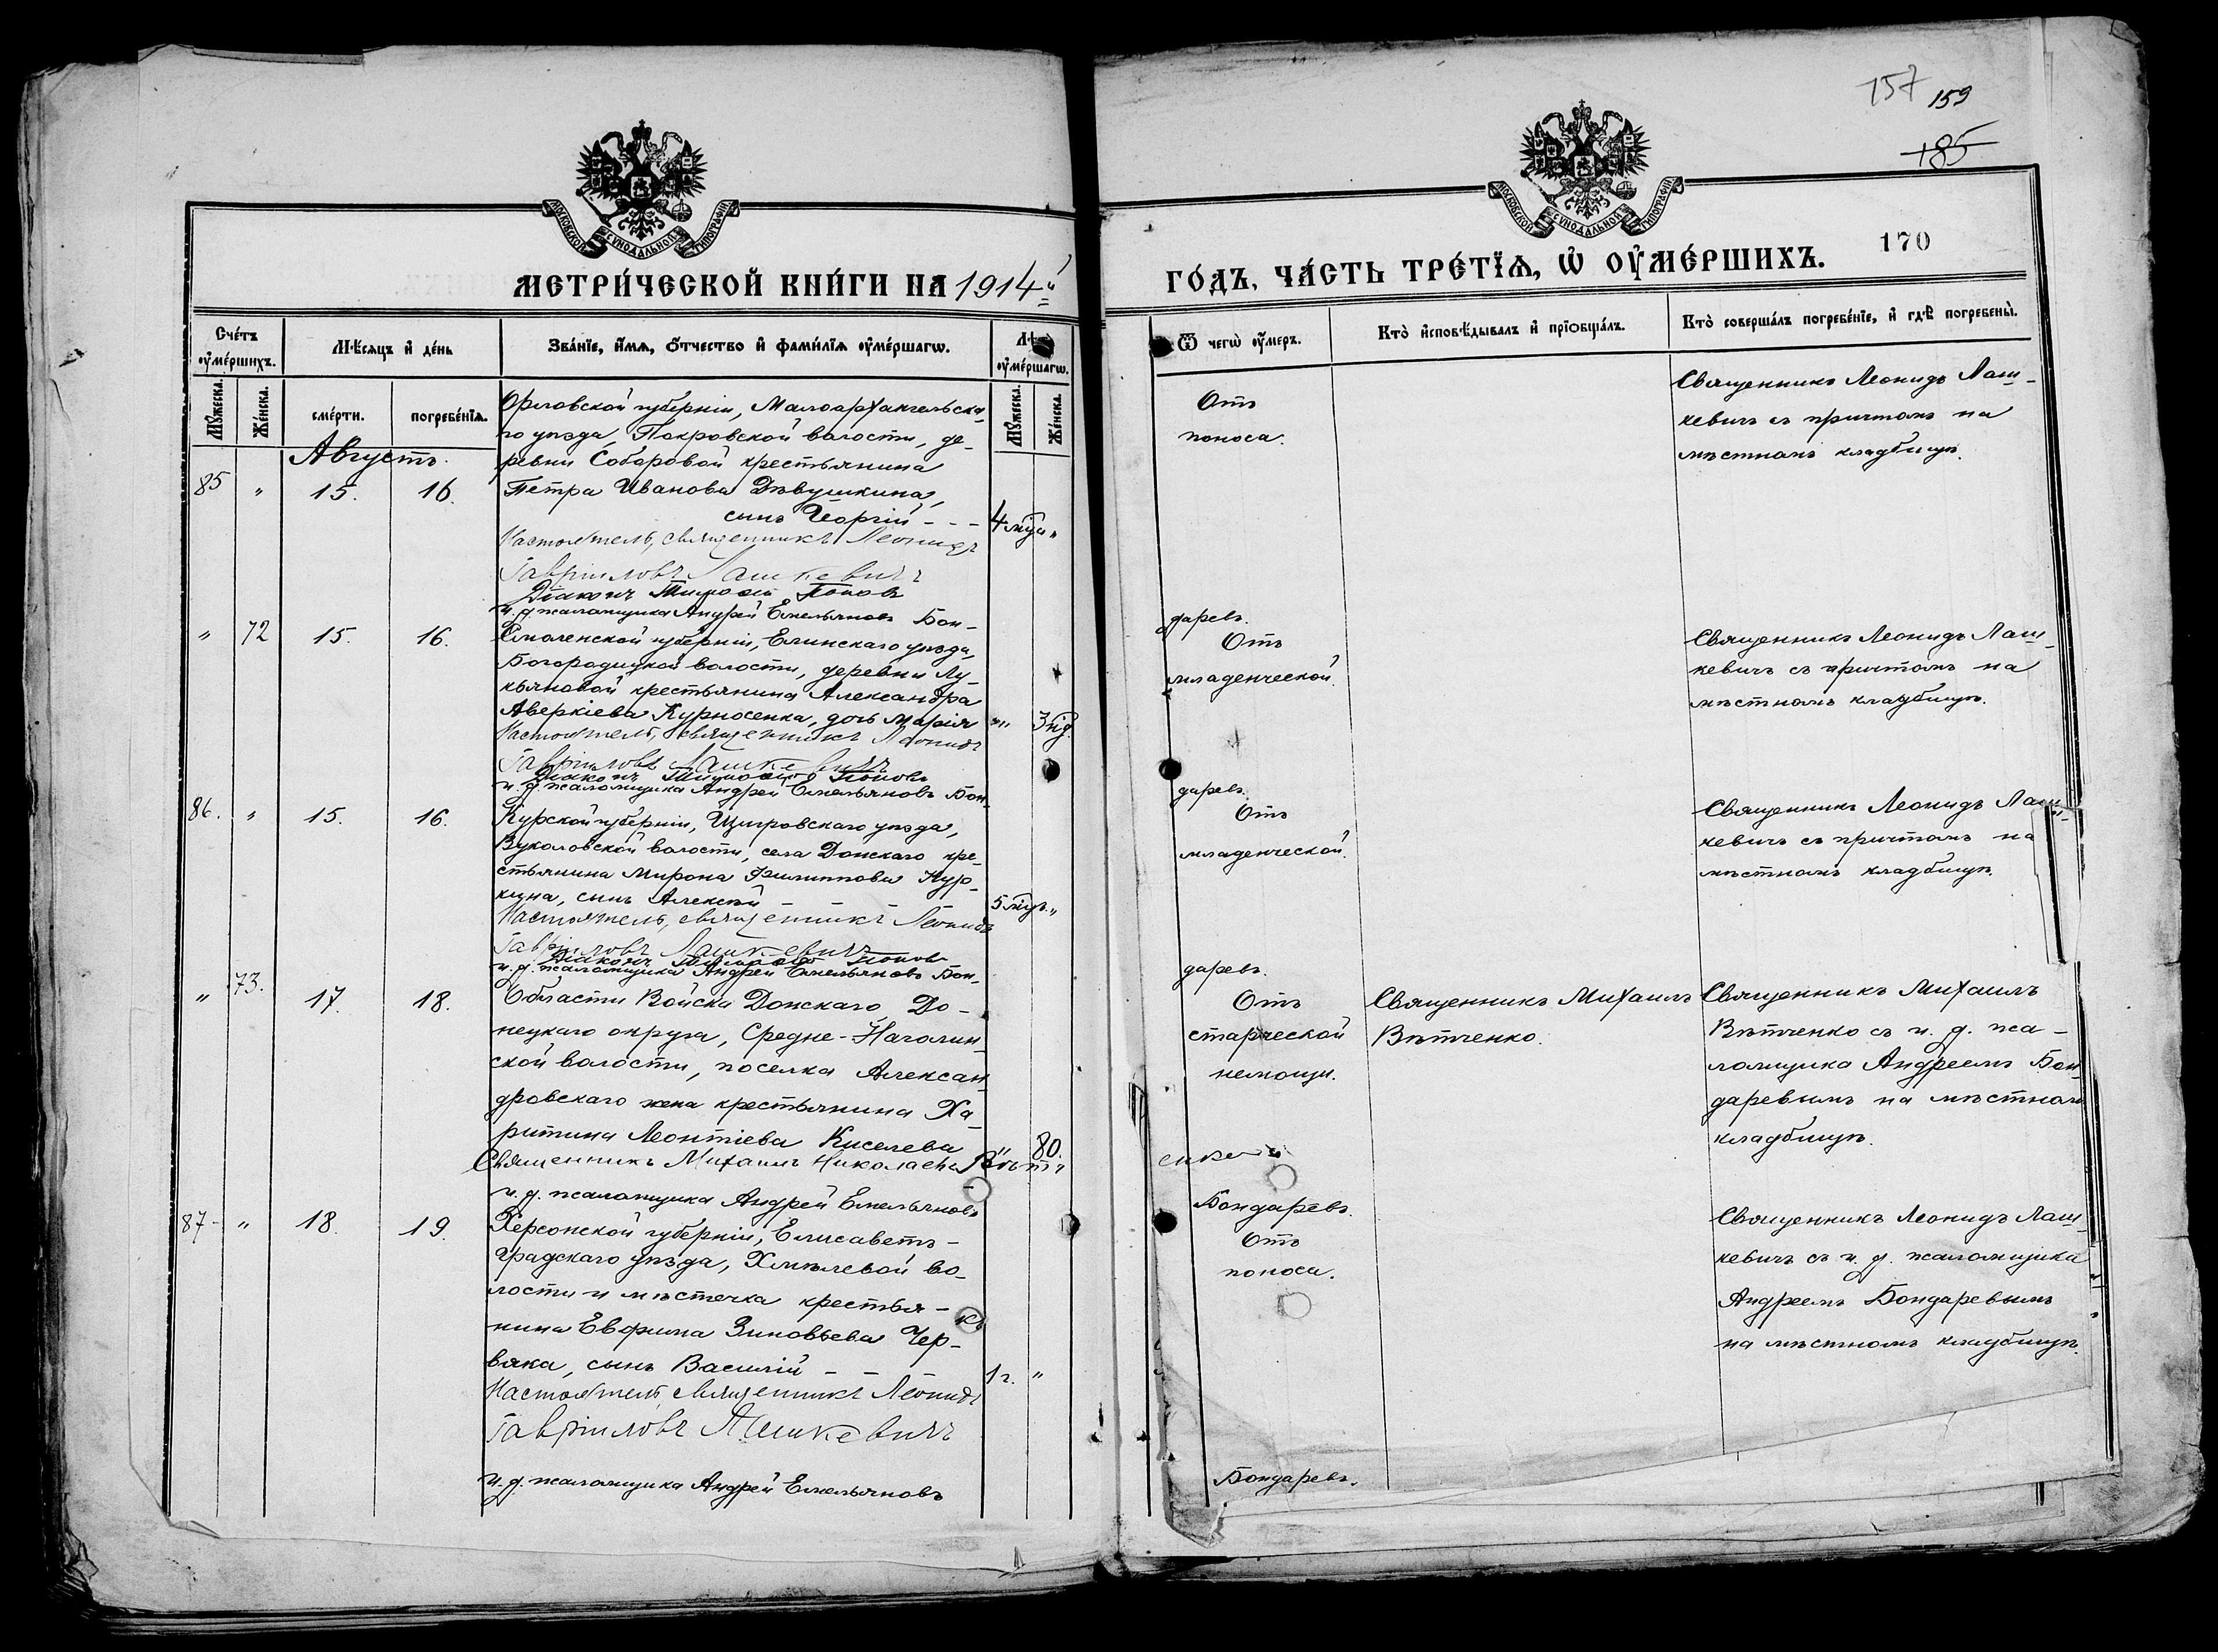 157 159
185
МОСКОВСКОЙ СѴНОДАЛЬНОЙ ТИПОГРАФІИ
МОСКОВСКОЙ СѴНОДАЛЬНОЙ ТИПОГРАФІИ
МЕТРИ́ЧЕСКОЙ КНИ́ГИ НА 1914й
ГО́ДЪ, ЧА́СТЬ ТРЕ́ТЇѦ, Ѡ ОУ҆МЕ́РШИХЪ.
170
Сче́тъ оу҆ме́ршихъ.
Мѣ́сяцъ и҆ де́нь
Зва́нїе, и҆́мѧ, ѻ҆́тчество и҆ фами́лїѧ оу҆ме́ршагѡ.
оу҆ме́ршагѡ.
Ѿ чегѡ̀ оу҆́меръ.
Кто̀ и҆сповѣ́дывалъ и҆ прїѻбща́лъ.
Кто̀ соверша́лъ погребе́нїе, и҆ гдѣ̀ погребены̀.
Мꙋ́жеска.
Же́нска.
сме́рти.
погребе́нїѧ.
Мꙋ́жеска.
Же́нска.
Августъ.
85 " 15. 16.
Орловской губерніи, Малоархангельска-
го уѣзда, Покровской волости, де-
ревни Собаровой крестьянина
Петра Иванова Дѣвушкина,
сынъ Георгій - - - 4 мѣс. "
Настоятель, священникъ Леонидъ
Гавріиловъ Лашкевичъ
Діаконъ Тимофей Поповъ
и. д. псаломщика Андрей Емельяновъ Бон-
дарев.
Отъ
поноса.
Священникъ Леонидъ Лаш-
кевичъ съ причтомъ на
мѣстномъ кладбищѣ.
" 72 15. 16.
Смоленской губерніи, Елинскаго уѣзда,
Богородицкой волости, деревни Лу-
кьяновой крестьянина Александра
Аверкіева Курносенка, дочь Марія " 3 нд.
Настоятель, священникъ Леонидъ
Гавріиловъ Лашкевичъ
Діаконъ Тимофей Поповъ
и. д. псаломщика Андрей Емельяновъ Бон-
дарев.
Отъ
младенческой.
Священникъ Леонидъ Лаш-
кевичъ съ причтомъ на
мѣстномъ кладбищѣ.
86. " 15. 16.
Курской губерніи, Щигровскаго уѣзда,
Вуколовской волости, села Донскаго кре-
стьянина Мирона Филиппова
сынъ Алексѣй 5 мѣс. "
Настоятель, священникъ Леонидъ
Гавріиловъ Лашкевичъ
Діаконъ Тимофей Поповъ
и. д. псаломщика Андрей Емельяновъ Бон-
дарев.
Отъ
младенческой.
Священникъ Леонидъ Лаш-
кевичъ съ причтомъ на
мѣстномъ кладбищѣ.
" 73. 17. 18.
Области Войска Донскаго, До-
нецкаго округа, Средне-Наголин-
ской волости, поселка Алексан-
дровскаго жена крестьянина Ха-
ритина Леонтіева Киселева " 80.
Священникъ Михаилъ Николаевъ Вѣтч
енко
и. д. псаломщика Андрей Емельяновъ
Бондаревъ.
Отъ
старческой
немощи.
Священникъ Михаилъ
Вѣтченко.
Священникъ Михаилъ
Вѣтченко съ и. д. пса-
ломщика Андреемъ Бон-
даревымъ на мѣстномъ
кладбищѣ.
87- " 18. 19.
Херсонской губерніи, Елисавет-
градскаго уѣзда, Хмѣлевой во-
лости и мѣстечка крестья-
нина Евфима Зиновьева Чер-
вяка, сынъ Василій - - 1 г. "
Настоятель, священникъ Леонидъ
Гавріиловъ Лашкевичъ
и. д. псаломщика Андрей Емельяновъ
Бондаревъ.
Отъ
поноса.
Священникъ Леонидъ Лаш-
кевичъ съ и. д. псаломщика
Андреемъ Бондаревымъ
на мѣстномъ кладбищѣ.